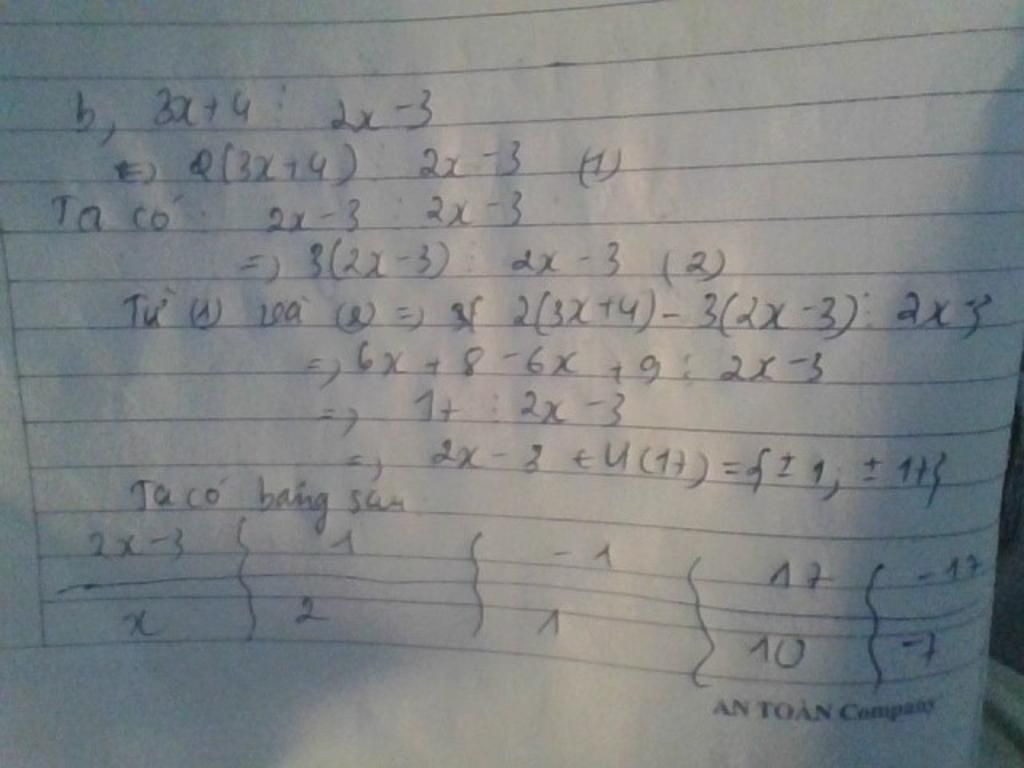 b, 3x+4 ⋮ 2x-3
<=> 2(3x+4) ⋮ 2x-3 (1)
Ta có: 2x-3 ⋮ 2x-3
=> 3(2x-3) ⋮ 2x-3 (2)
Từ (1) và (2) => 2(3x+4) - 3(2x-3) ⋮ 2x-3
=> 6x + 8 - 6x + 9 ⋮ 2x-3
=> 17 ⋮ 2x-3
=> 2x-3 ∈ Ư(17) = {±1; ±17}
Ta có bảng sau
2x-3 1 -1 17 -17
x 2 1 10 -7
AN TOÀN Company